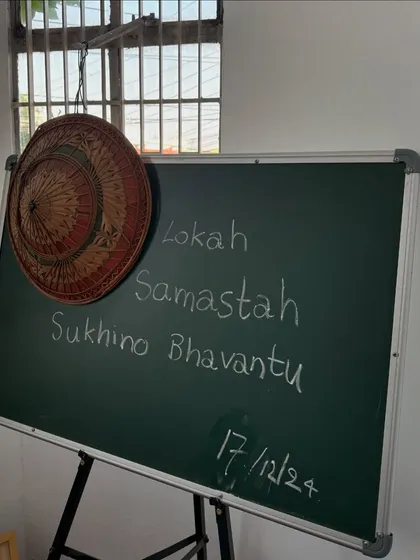 Lokah
Samastah
Sukhino Bhavantu
17/12/24